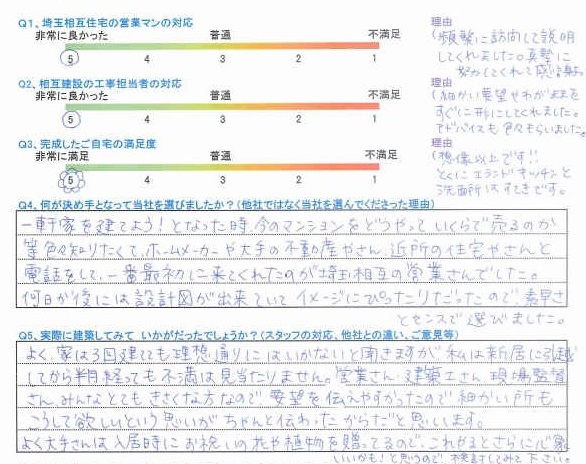 Q1、埼玉相互住宅の営業マンの対応
非常に良かった 普通 不満足
5 4 3 2 1
理由
(頻繁に訪問して説明
してくれました。真摯に
努力してくれて感謝。
Q2、相互建設の工事担当者の対応
非常に良かった 普通 不満足
5 4 3 2 1
理由
(細かい要望やわがままを
すぐに形にしてくれました。
アドバイスも色々もらいました。
Q3、完成したご自宅の満足度
非常に満足 普通 不満足
5 4 3 2 1
理由
(想像以上です!!
とくにアイランドキッチンと
洗面所はすてきです。
Q4、何が決め手となって当社を選びましたか?(他社ではなく当社を選んでくださった理由)
一軒家を建てよう!となった時、今のマンションをどうやっていくらで売るのか
等色々知りたくて、ホームメーカーや大手の不動産やさん、近所の住宅やさんと
電話をして、一番最初に来てくれたのが埼玉相互の営業さんでした。
何日か後には設計図が出来ていてイメージにぴったりだったので、素早さ
とセンスで選びました。
Q5、実際に建築してみて いかがだったでしょうか?(スタッフの対応、他社との違い、ご意見等)
よく、家は3回建てても理想通りにはいかないと聞きますが、私は新居に引越
してから半月経っても不満は見当たりません。営業さん、建築士さん、現場監督
さん、みんなとてもきさくな方なので要望を伝えやすかったので細かい所も
こうして欲しいという思いがちゃんと伝わったからだと思います。
よく大手さんは入居時にお祝いの花や植物を贈ってるので、これやるとさらに心象
いいかも!と思うので検討してみて下さい。